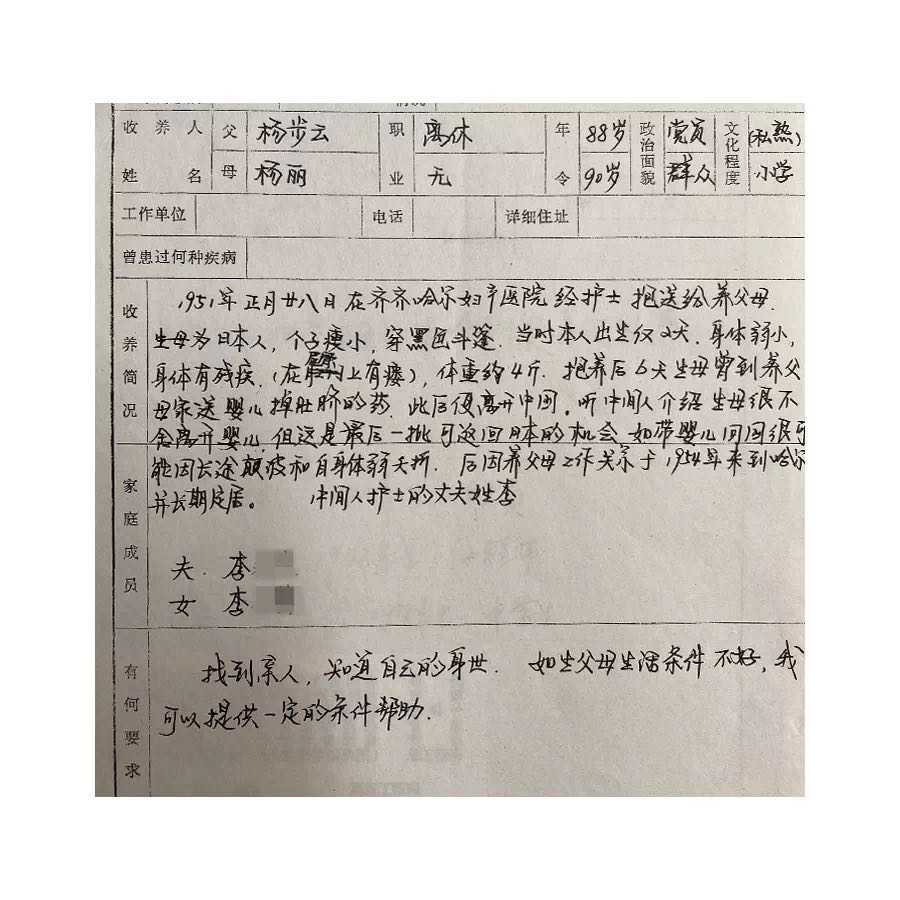 收养人 父 杨步云 职 离休 年 88岁 政治面貌 党员 文化程度 (私熟)
姓名 母 杨丽 业 无 令 90岁 群众 小学
工作单位 电话 详细住址
曾患过何种疾病
收养简况
1951年正月廿八日在齐齐哈尔妇产医院经护士抱送给养父母.
生母为日本人,个子瘦小,穿黑色斗篷.当时本人出生仅2天.身体弱小,
身体有残疾.(在上有瘘),体重约4斤.抱养后6天生母曾到养父
母家送婴儿掉肚脐的药.此后便离开中国。听中间人介绍生母很不
舍离开婴儿,但这是最后一批可返回日本的机会.如带婴儿回国很可
能因长途颠波和自身体弱夭折.后因养父母工作关系于1954年来到哈尔
并长期定居。 中间人护士的丈夫姓李
家庭成员
夫.李
女 李
有何要求
找到亲人,知道自己的身世. 如生父母生活条件不好,我
可以提供一定的条件帮助.